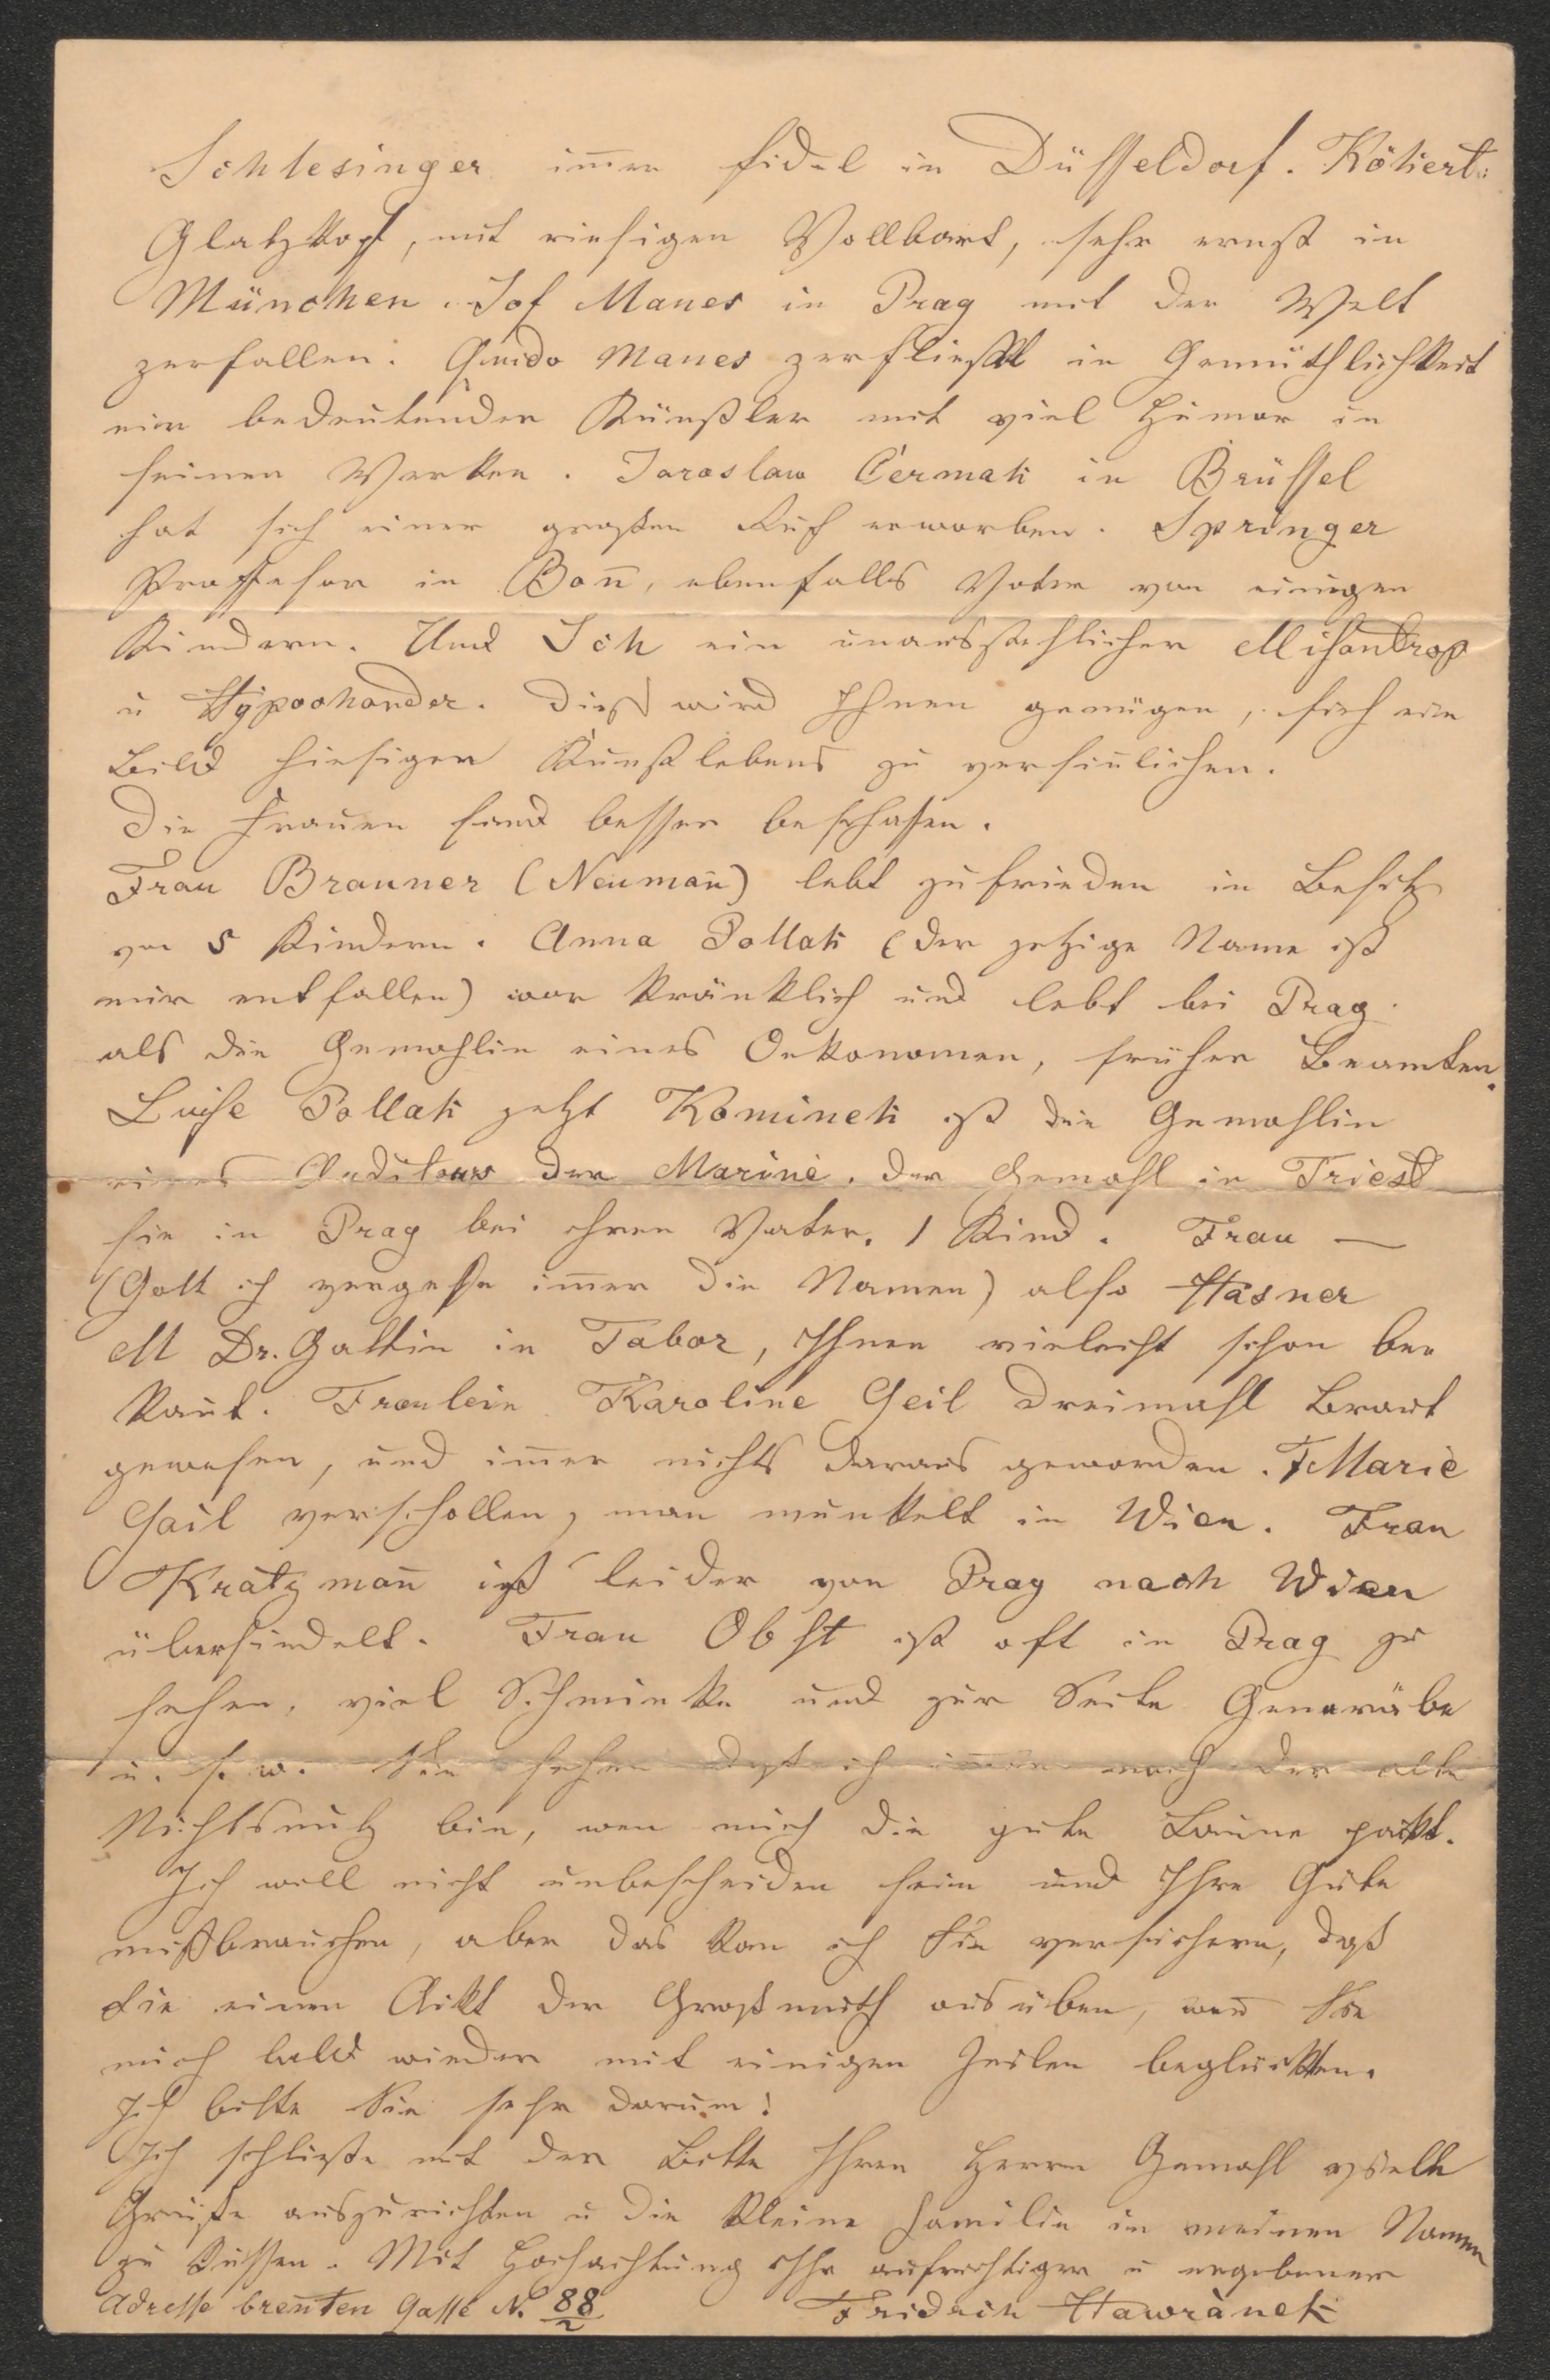 Schlesinger im̄er fidel in Düsseldorf. Köhert:
Glatzkopf, mit riesigen Vollbart, sehr ernst in
München. Jos Manes in Prag mit der Welt
zerfallen. Quido Manes zerfliesst in Gemüthlichkeit
ein bedeutender Künstler mit viel Humor in
seinen Werken. Jaroslaw Čermak in Brüssel
hat sich einen großen Ruf erworben. Springer
Professor in Bon̄, ebenfalls Vater von einigen
Kindern. Und Ich ein unausstehlicher Misantrop
u Hypochonder. Dieß wird Ihnen genügen, sich ein
Bild hiesigen Kunstlebens zu versin̄lichen.
Die Frauen sind besser beschaffen.
Frau Brauner (Neuman̄) lebt zufrieden im Besitz
von 5 Kindern. Anna Pollak (der jetzige Name ist
mir entfallen) war kränklich und lebt bei Prag
als die Gemahlin eines Oekonomen, früher Beamten.
Luise Pollak jetzt Kominek ist die Gemahlin
eines Auditors der Marine. der Gemahl in Triest
sie in Prag bei ihren Vater. 1 Kind. Frau —
(Gott ich vergesse im̄er die Namen) also Hasner
M Dr. Gattin in Tabor, Ihnen vieleicht schon be=
kan̄t. Fräulein Karoline Geil dreimahl Braut
gewesen, und im̄er nichts daraus geworden. F Marie
Gail verschollen, man munkelt in Wien. Frau
Kratzman̄ ist leider von Prag nach Wien
übersiedelt. Frau Obst ist oft in Prag zu
sehen. viel Schminke und zur Seite
u. s. w. Sie sehen daß ich im̄er noch der alte
Nichtsnutz bin, wen mich die gute Laune packt.
Ich will nicht unbescheiden sein und Ihre Güte
mißbrauchen, aber das kan ich Sie versichern, daß
Sie einen Ackt der Großmuth ausüben, wen̄ Sie
mich bald wieder mit einigen Zeilen beglückten.
Ich bitte Sie sehr darum!
Ich schließe mit der Bitte Ihren Herrn Gemahl
Grüße auszurichten u die kleine Familie in meinen Namen
zu küssen. Mit Hochachtung Ihr aufrichtiger u ergebener
Adresse brenten Gasse N. 88/2 Fridrich Hawránek